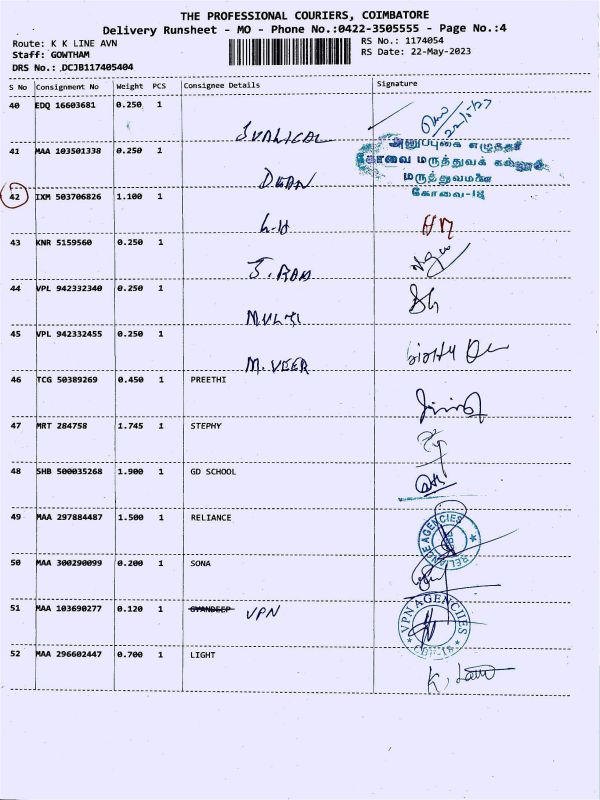 THE PROFESSIONAL COURIERS, COIMBATORE
Delivery Runsheet - MO - Phone No.:0422-3505555 - Page No.:4
Route: K K LINE AVN
RS No.: 1174054
Staff: GOWTHAM
RS Date: 22-May-2023
DRS No.: DCJB117405404
S No Consignment No Weight PCS Consignee Details Signature
40 EDQ 16603681 0.250 1
அனுப்புகை எழுத்தர்
41 MAA 103501338 0.250 1
கோவை மருத்துவக் கல்லூரி
மருத்துவமனை
DEAN
கோவை-18
42 IXM 503706826 1.100 1
43 KNR 5159560 0.250 1
J. RAM
44 VPL 942332340 0.250 1
MULTI
45 VPL 942332455 0.250 1
M. VEER
46 TCG 50389269 0.450 1 PREETHI
47 MRT 284758 1.745 1 STEPHY
48 SHB 500035268 1.900 1 GD SCHOOL
49 MAA 297884487 1.500 1 RELIANCE
RELIANCE AGENCIES
50 MAA 300290099 0.200 1 SONA
51 MAA 103690277 0.120 1 GYANDEEP VPN
VPN AGENCIIES
52 MAA 296602447 0.700 1 LIGHT